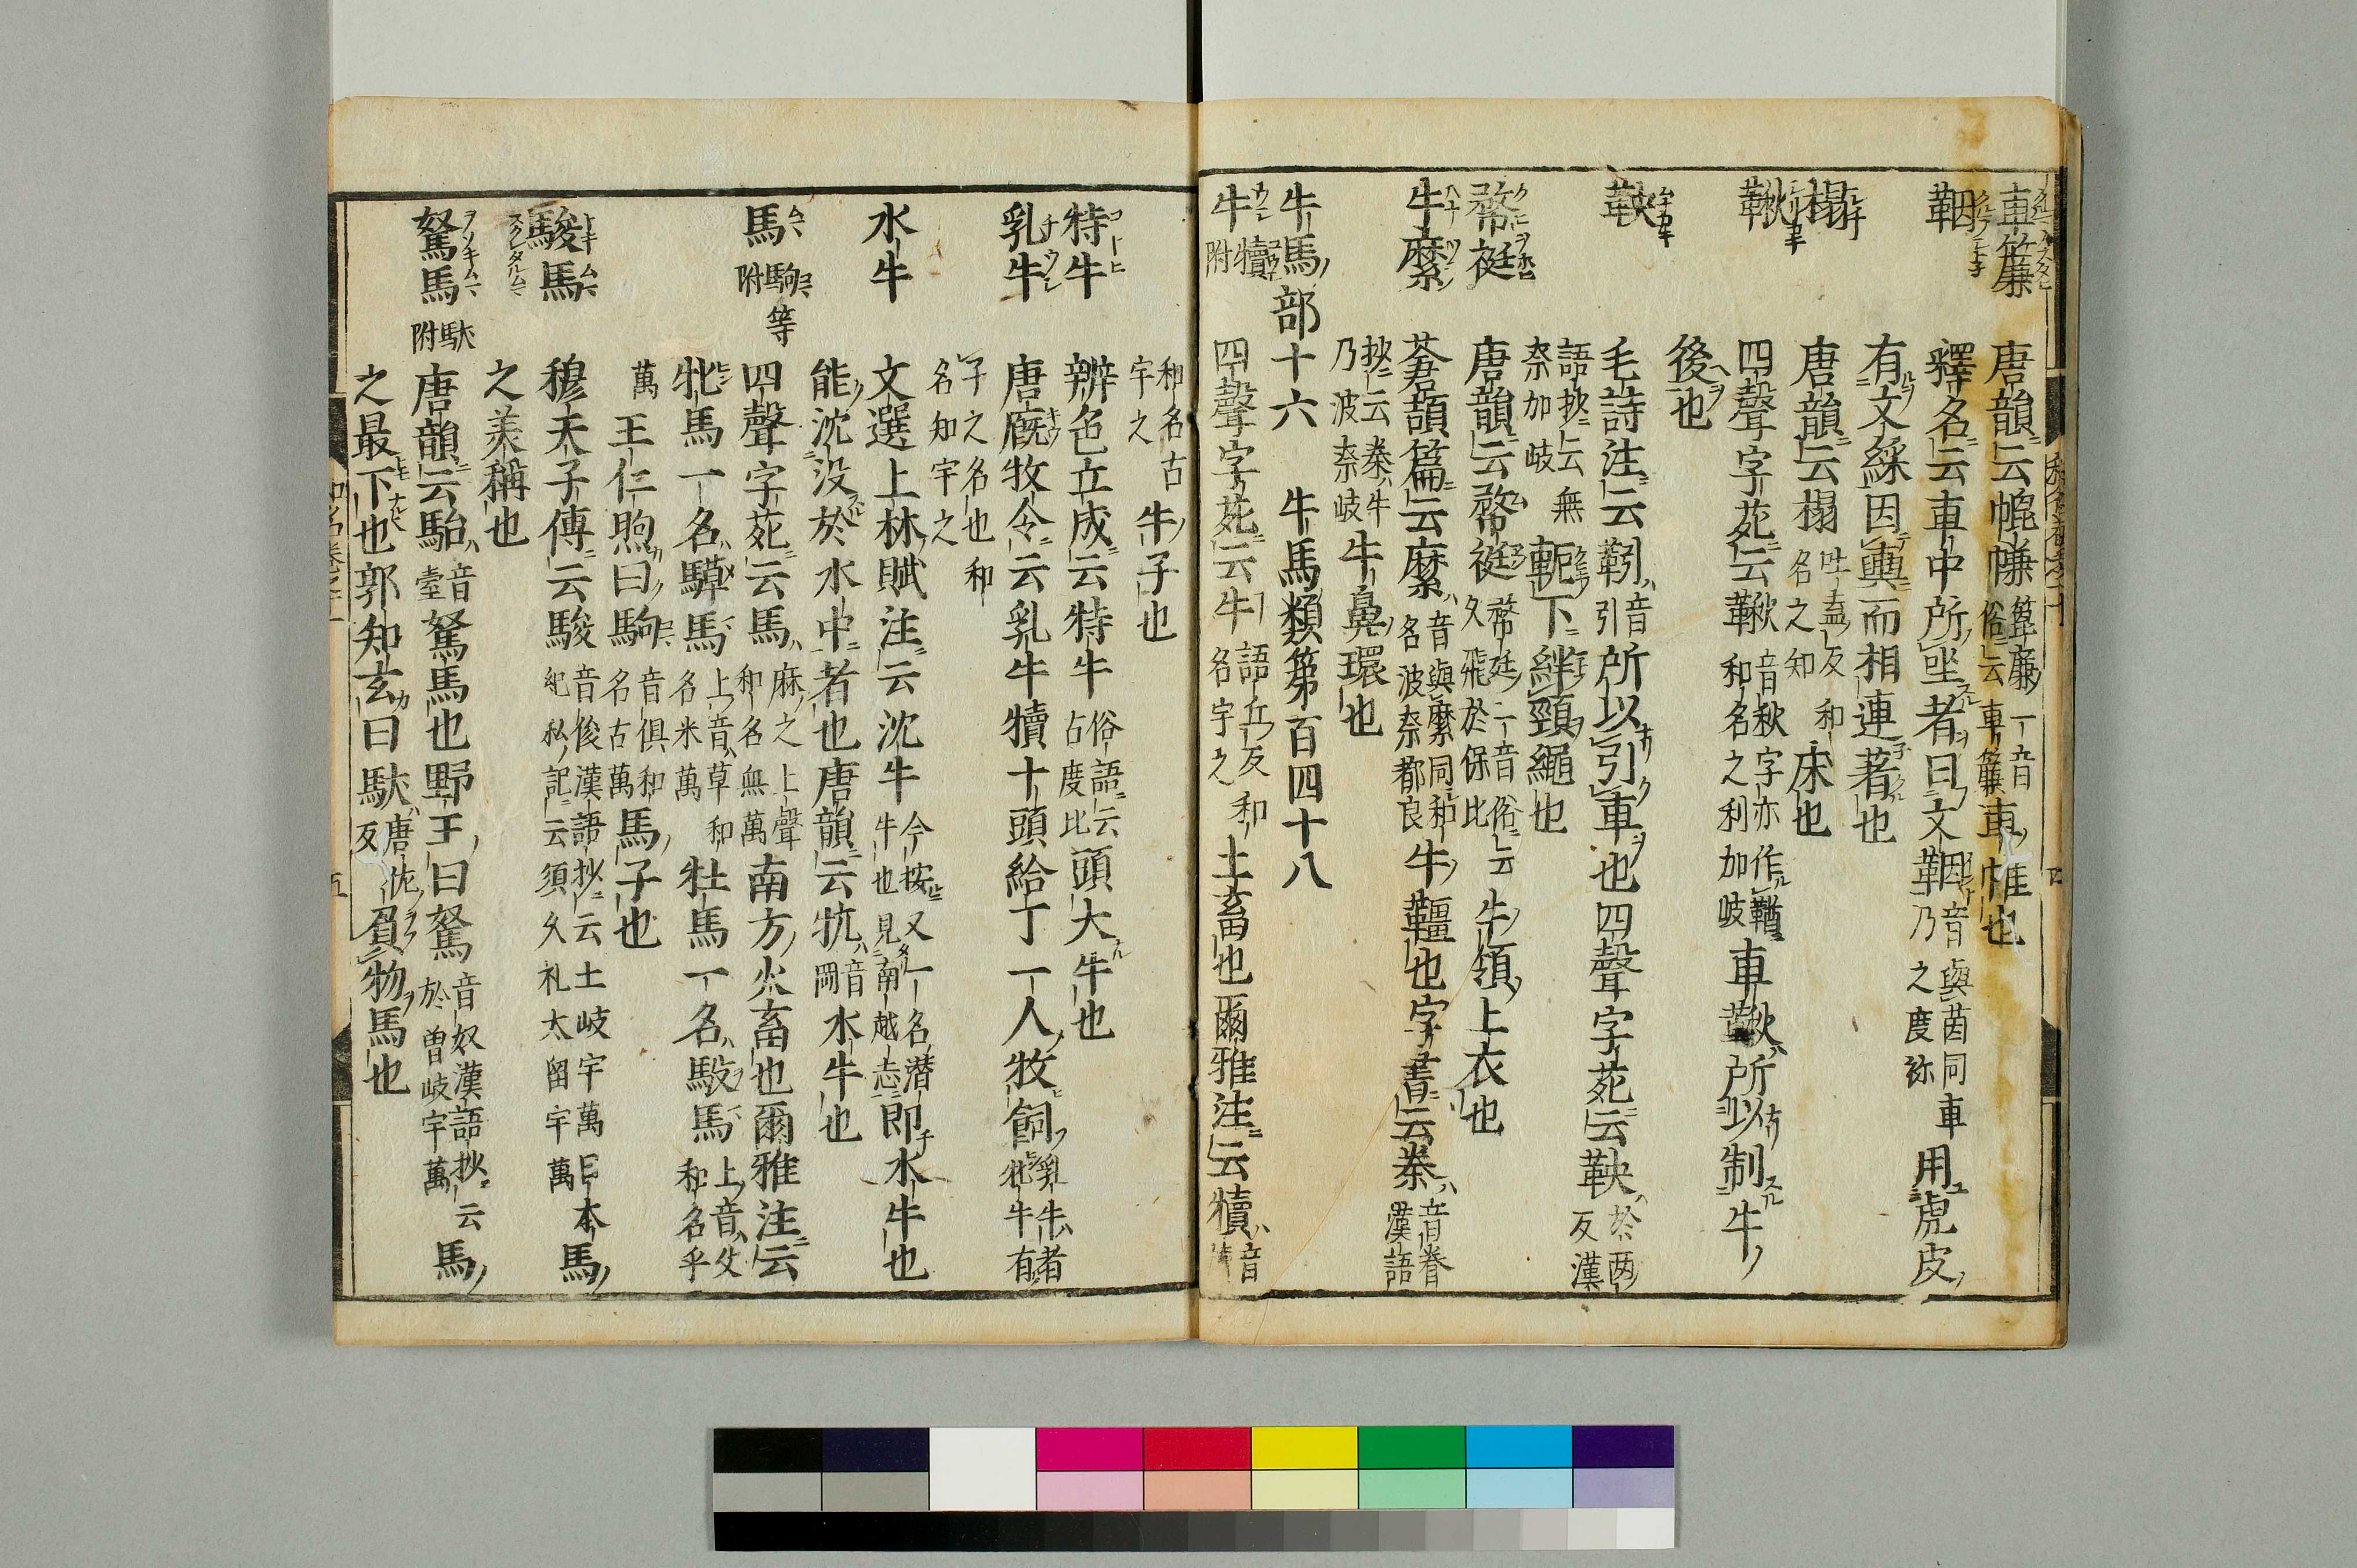 車簾 唐韻云幰㡘 䈴廉二音俗云車簾 車帷也
車茵 釋名云車中所坐者曰文茵 音與茵同車乃之度祢 用虎皮
有文綵因輿而相連著也
榻 唐韻云榻 吐盍反和名之知 床也
鞦 四聲字苑云鞦 音秋字亦作鞧和名之利加岐 車鞦所以制牛
後也
鞅 毛詩注云靷 音引 所以引車也四聲字苑云鞅 於兩反漢
語抄云無奈加岐 軛下絆頸繩也
唐韻云 二音俗云久飛於保比 牛領上衣也
牛縻 蒼頡篇云縻 音與糜同和名波奈都良 牛韁也字書云桊 音眷漢語
抄云桊牛乃波奈岐 牛鼻環也
牛馬部十六 牛馬類第百四十八
牛 犢附 四聲字苑云牛 語丘反和名宇之 土畜也爾雅注云犢 音
和名古宇之 牛子也
特牛 辨色立成云特牛 俗語云古度比 頭大牛也
乳牛 唐厩牧令云乳牛犢十頭給丁一人牧飼 乳牛者牝牛有
子之名也和名知宇之
水牛 文選上林賦注云沈牛 今按又一名潜牛也見南越志 即水牛也
能沈没於水中者也唐韻云㸘 音岡 水牛也
馬 駒等附 四聲字苑云馬 麻之上聲和名無萬 南方火畜也爾雅注云
牝馬一名騲馬 上音草和名米萬 牡馬一名䭸馬 上音父和名乎
萬 王仁煦曰駒 音俱和名古萬 馬子也
駿馬 穆天子傳云駿 音俊漢語抄云土岐宇萬日本紀私記云須久礼太留宇萬 馬
之美稱也
駑馬 駄附 唐韻云駘 音臺 駑馬也野王曰駑 音奴漢語抄云於曽岐宇萬 馬
之最下也郭知玄曰駄 唐佐反 負物馬也